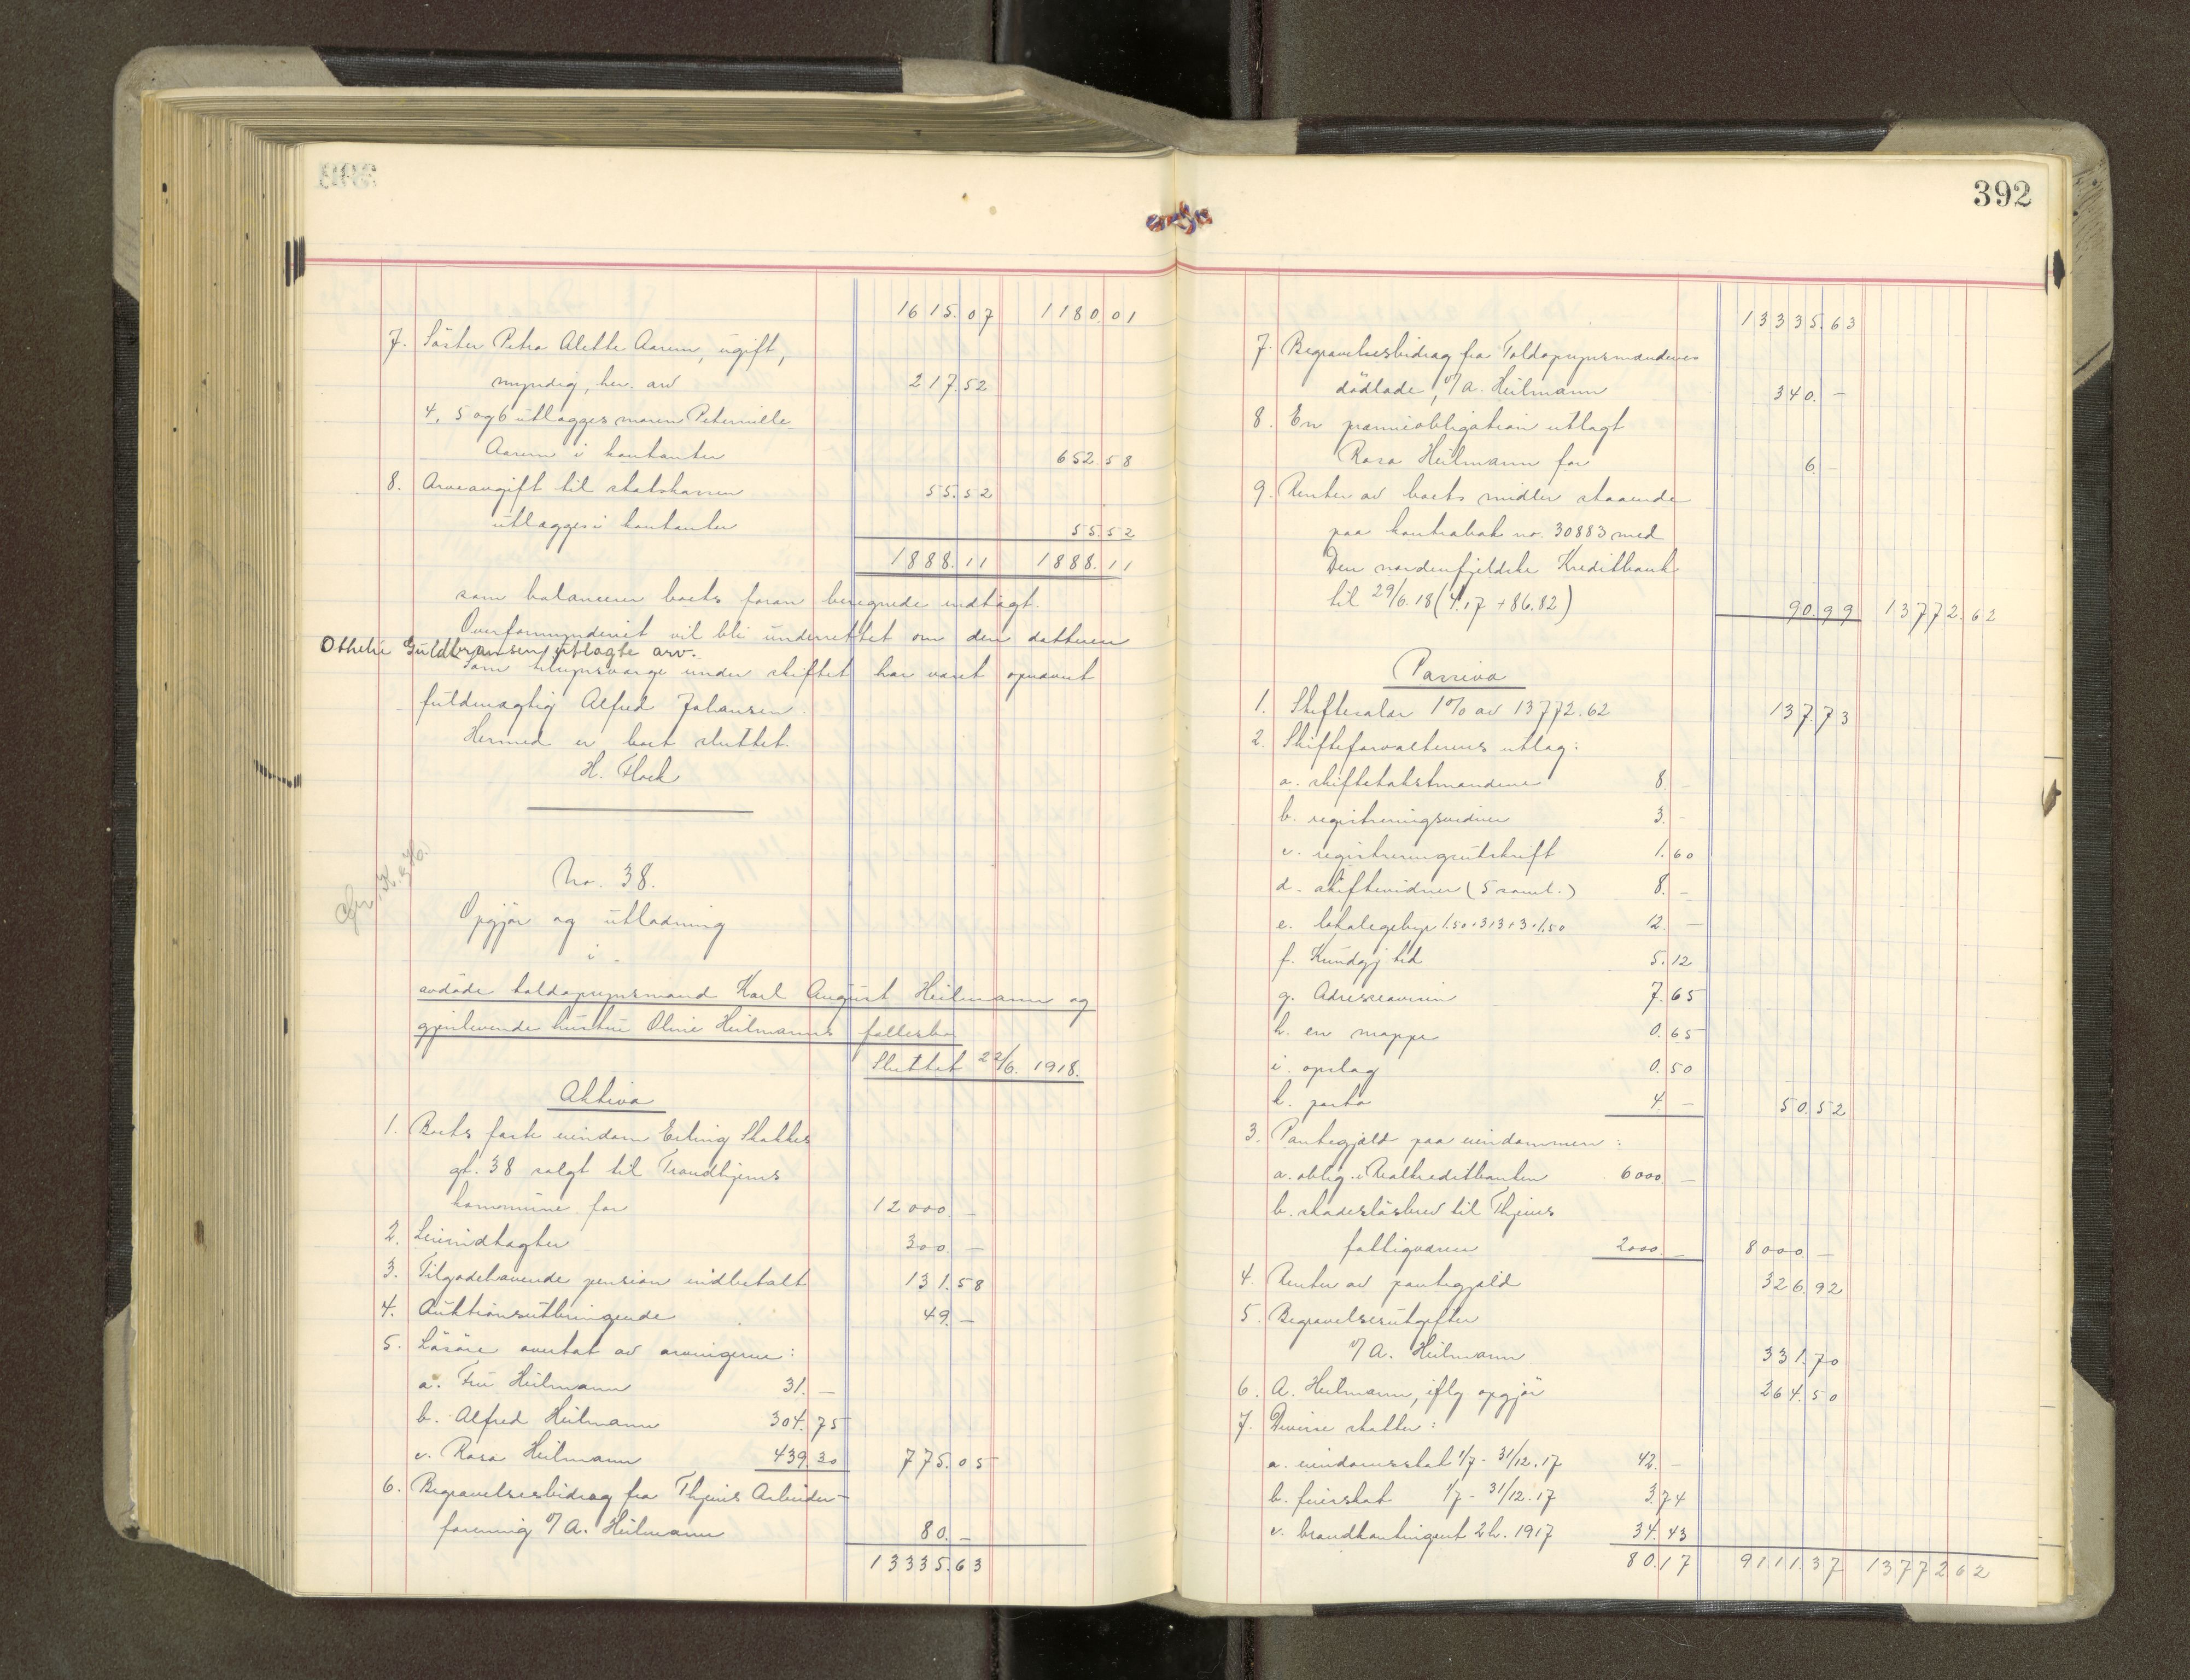 1615.07 1180.01
7. Söster Petra Alette Aarem, ugift,
myndig, her. arv 217.52
4, 5 og 6 utlægges moren Peternille
Aarem i kontanter 652.58
8. Arveavgift til statskassen 55.52
utlægges i kontanter 55.52
1888.11 1888.11
som balancerer boets foran beregnede indtægt.
Overformynderiet vil bli underrettet om den datteren
Othelie Guldbransen utlagte arv.
Som tilsynsværge under skiftet har været opnævnt
fuldmægtig Alfred Johansen.
Hermed er boet sluttet.
H. Floek
No. 38.
Opgjör og utlodning
i
avdöde toldopsynsmand Karl August Heilmann og
gjenlevende hustru Oline Heilmanns fællesbo
Sluttet 22/6. 1918.
Aktiva
1. Boets faste eiendom Erling Skakkes
gt. 38 solgt til Trondhjems
kommune for 12000.-
2. Leieindtægter 300.-
3. Tilgodehavende pension indbetalt 131.58
4. Auktionsutbringende 49.-
5. Lösöre overtat av arvingerne:
a. Fru Heilmann 31.-
b. Alfred Heilmann 304.75
c. Rosa Heilmann 439.30 775.05
6. Begravelsesbidrag fra Thjems Arbeider-
forening v/ A. Heilmann 80.-
13335.63
392
13335.63
7. Begravelsesbidrag fra Toldopsynsmændenes
dödlade, v/ A. Heilmann 340.-
8. En premieobligation utlagt
Rosa Heilmann for 6.-
9. Renter av boets midler staaende
paa kontrabok no. 30883 med
Den nordenfjeldske Kreditbank
til 29/6.18 (4.17 + 86.82) 90.99 13772.62
Passiva
1. Skiftesalær 1% av 13772.62 137.73
2. Skifteforvalterens utlæg:
a. skiftetakstmændene 8.-
b. registreringsvidner 3.-
c. registreringsutskrift 1.60
d. skiftevidner (5 saml.) 8.-
e. lokalegebyr 1.50+3+3+3+1.50 12.-
f. Kundgj tid 5.12
g. Adresseavisen 7.65
h. en mappe 0.65
i. opslag 0.50
k. porto 4.- 50.52
3. Pantegjæld paa eiendommen:
a. oblig. i Realkreditbanken 6000.-
b. skadeslösbrev til Thjems
fattigvæsen 2000.- 8000.-
4. Renter av pantegjæld 326.92
5. Begravelsesutgifter
v/ A. Heilmann 331.70
6. A. Heilmann, iflg opgjör 264.50
7. Diverse skatter:
a. eiendomsskat 1/7 - 31/12.17 42.-
b. feierskat 1/7 - 31/12.17 3.74
c. brandkontingent 2h. 1917 34.43
80.17 9111.37 13772.62